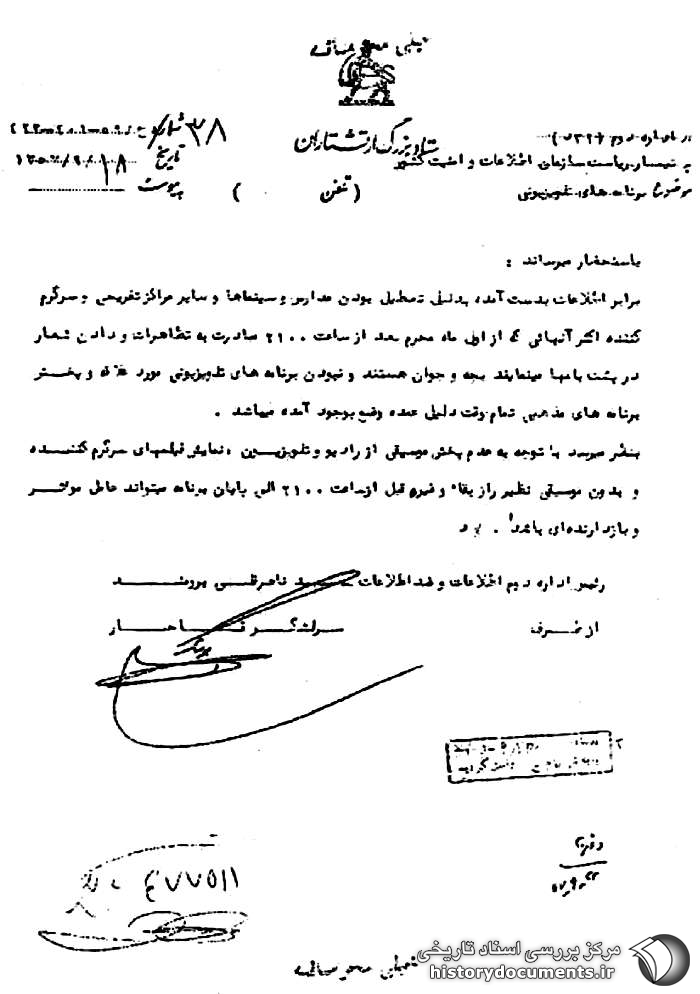 خیلی محرمانه
ستاد بزرگ ارتشتاران
از اداره دوم
به تیمسار ریاست سازمان اطلاعات و امنیت کشور
موضوع برنامه های تلویزیونی
شماره ۳۸
تاریخ ۱۸
پیوست
باستحضار میرساند :
برابر اطلاعات بدست آمده بدلیل تعطیل بودن مدارس و سینماها و سایر مراکز تفریحی و سرگرم
کننده اکثر آنهائی که از اول ماه محرم بعد از ساعت ۲۱۰۰ مبادرت به تظاهرات و دادن شعار
در پشت بامها مینمایند بچه و جوان هستند و نبودن برنامه های تلویزیونی مورد علاقه و پخش
برنامه های مذهبی تمام وقت دلیل عمده وضع بوجود آمده میباشد .
بنظر میرسد با توجه به عدم پخش موسیقی از رادیو و تلویزیون ، نمایش فیلمهای سرگرم کننده
و بدون موسیقی نظیر راز بقاء و غیره قبل از ساعت ۲۱۰۰ الی پایان برنامه میتواند عامل موثر
و بازدارنده ای باشد .
رئیس اداره دوم اطلاعات و ضد اطلاعات سپهبد ناصرقلی برومند
از طرف سرلشگر
۴۷۷۵۱۱
خیلی محرمانه
مرکز بررسی اسناد تاریخی
historydocuments.ir